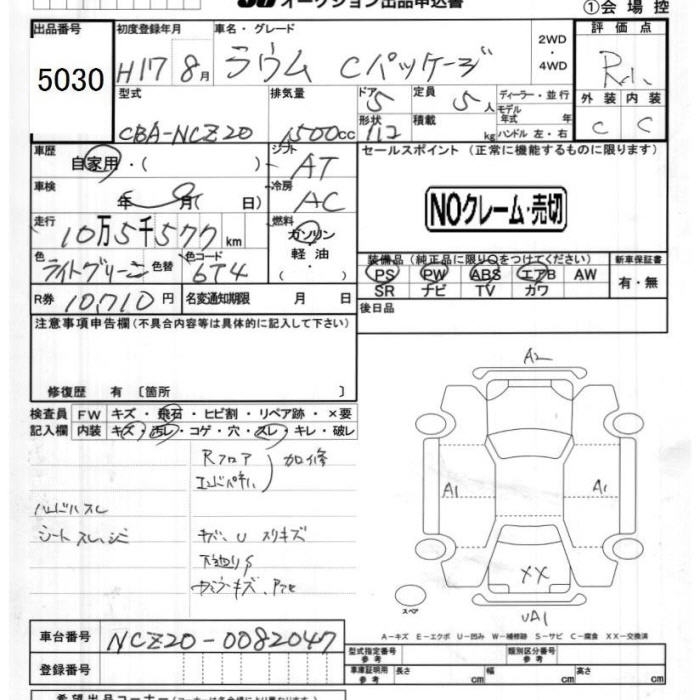 オークション出品申込書
①会場控
出品番号 初度登録年月 車名・グレード 2WD・4WD 評価点
5030 H17 8月 ラウム Cパッケージ R
型式 排気量 ドア 5 定員 5人 ディーラー・並行 外装 内装
CBA-NCZ20 1500cc 形状 積載 kg モデル年式 年 ハンドル 左・右 C C
車歴 自家用・( ) シフト AT セールスポイント (正常に機能するものに限ります)
車検 年 月( 日) 冷房 AC
NOクレーム・売切
走行 10万5千577km 燃料 ガソリン・軽油・( )
色 ライトグリーン 色替 色コード 6T4
装備品 (純正品に限り○をつけてください) 新車保証書
PS PW ABS エアB AW 有・無
SR ナビ TV カワ
R券 10,710円 名変通知期限 月 日
後日品
注意事項申告欄(不具合内容等は具体的に記入して下さい)
修復歴 有〔箇所 〕
検査員記入欄 FW キズ・飛石・ヒビ割・リペア跡・×要
内装 キズ・汚レ・コゲ・穴・スレ・キレ・破レ
Rフロア
加修
ハンドルスレ
シート
キズ
A2
A1
A1
XX
UA1
スペア
A-キズ E-エクボ U-凹み W-補修跡 S-サビ C-腐食 XX-交換済
車台番号 NCZ20-0082047
型式指定番号 参考 類別区分番号 参考
登録番号
車庫証明用 参考 長さ cm 幅 cm 高さ cm
希望出品コーナー